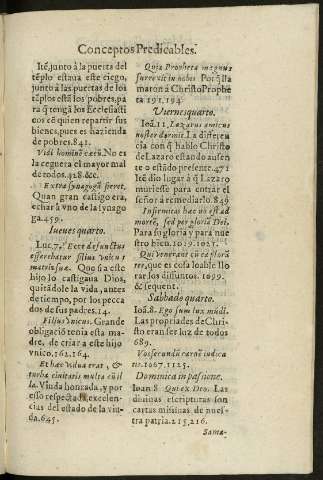 Conceptos Predicables.
Ité, junto à la puerta del
téplo estaua este ciego,
junto à las puertas de los
téplos està los pobres, pa
ra q̃ tengã los Ecclesiasti
cos cõ quien repartir sus
bienes, pues es hazienda
de pobres. 841.
Vidi hominẽ cæcũ. No es
la ceguera el mayor mal
de todos. 428. &c.
Extra synagogã fieret.
Quan gran castigo era,
echar à vno de la synago
ga. 459.
Iueues quarto.
Luc. 7. Ecce defunctus
efferebatur filius vnicus
matris suæ. Que fi a este
hijo lo castigaua Dios,
quitãdole la vida, antes
de tiempo, por los pecca
dos de sus padres. 14.
Filius vnicus. Grande
obligaciõ tenia esta ma-
dre, de criar a este hijo
vnico. 162. 164.
Et hæc vidua erat, &
turba ciuitatis multa cũ il
la. Viuda honrada, y por
esso respectada, excelen-
cias del estado de la viu-
da. 645.
Quia Propheta magnus
surrexit in nobis. Por q̃ lla
maron à Christo Prophe
ta 191. 194.
Viernes quarto.
Ioã. 11. Lazarus amicus
noster dormit. La differẽ
cia con q̃ hablo Christo
de Lazaro estando ausen
te o estãdo presente. 471
Itẽ dio lugar à q̃ Lazaro
muriesse para entrar el
señor à remediarlo. 849
Infirmitas hæc nõ est ad
mortẽ, sed pro gloria Dei.
Para su gloria y para nue
stro bien. 1019. 1021.
Qui venerant cũ ea plorã
tes, que es cosa loable llo
rar los difuntos. 1099.
& sequent.
Sabbado quarto.
Ioã. 8. Ego sum lux mũdi.
Las propriedades de Chri-
sto eran ser luz de todos
689.
Vos secundũ carnẽ iudica
tis. 1067. 1125.
Dominica in passione.
Ioan 8 Qui ex Deo. Las
diuinas escripturas son
cartas missiuas de nues-
tra patria. 215. 216.
Sama-